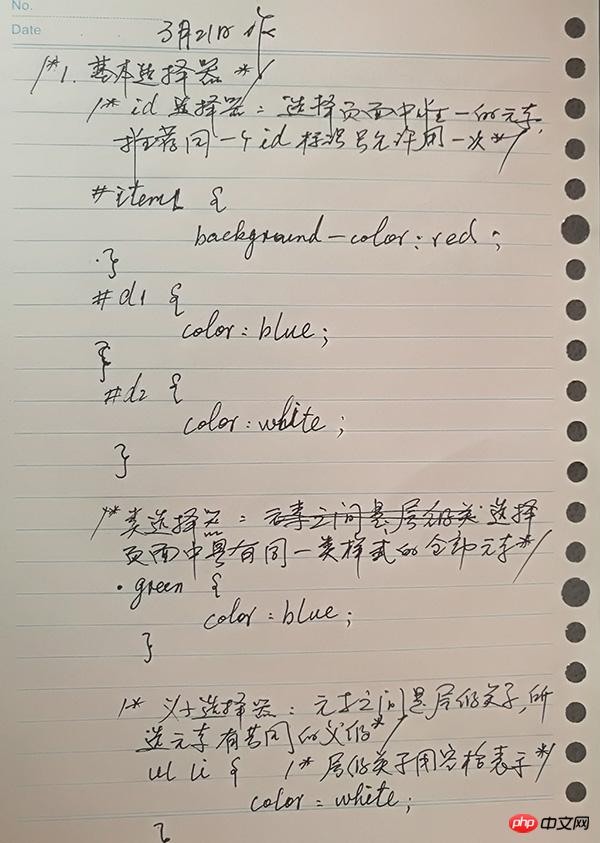 No.
Date
3月21日 作
/*1. 基本选择器 */
/* id 选择器：选择页面中唯一的元素,
推荐同一个id标识号允许用一次*/
#item1 {
background-color: red ;
}
#d1 {
color: blue;
}
#d2 {
color: white ;
}
/* 类选择器： 元素之间是层级关 选择
页面中具有同一类样式的全部元素*/
.green {
color: blue;
}
/* 选择器：元素之间是层级关系,所
选元素有共同的父级*/
ul li { /* 层级关系用空格表示*/
color: white;
}
php 中文网